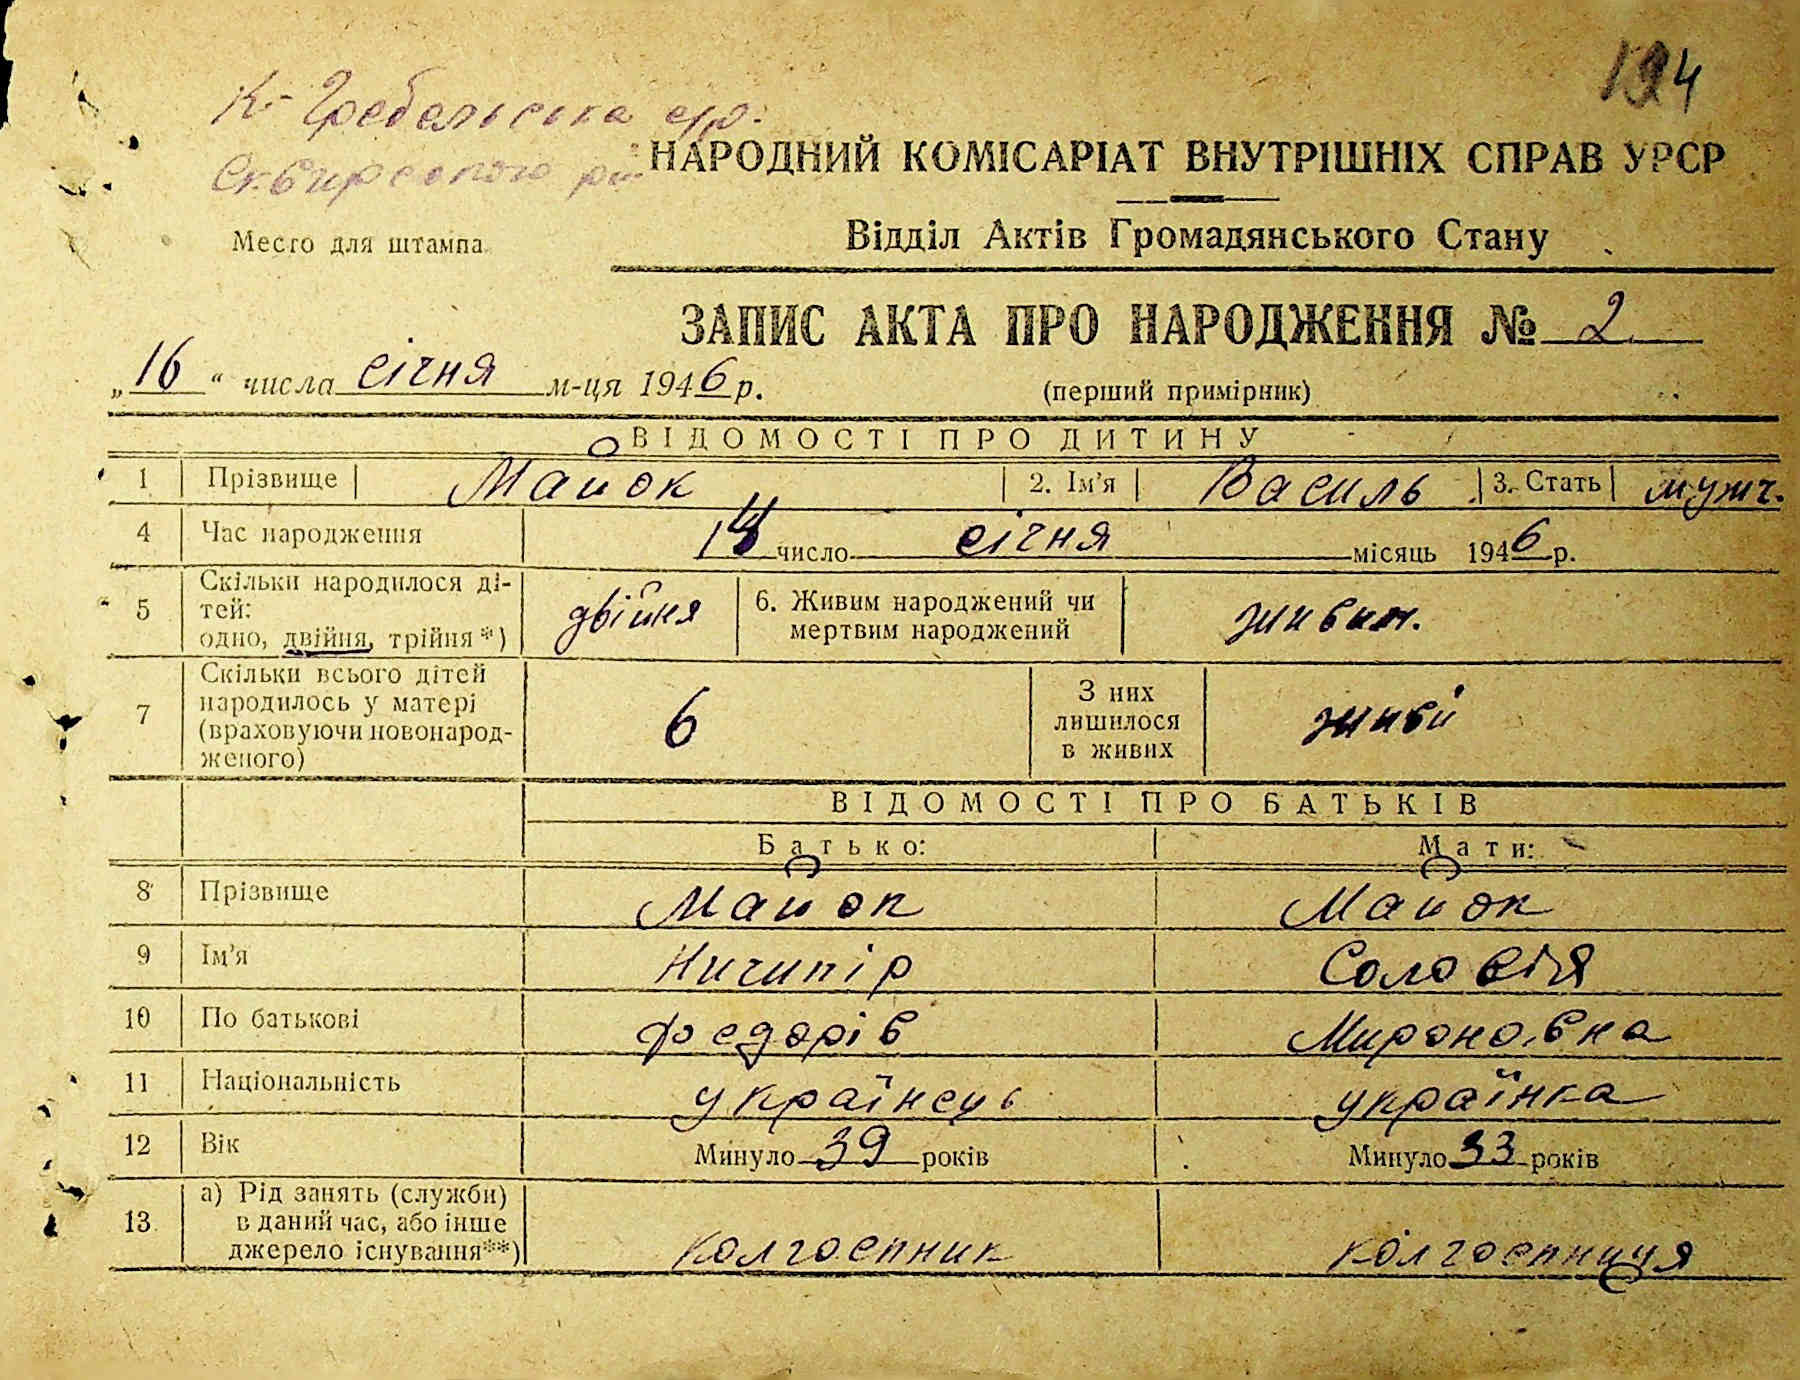 194
К-Гребельська с/р.
Сквирського р-н
НАРОДНИЙ КОМІСАРІАТ ВНУТРІШНІХ СПРАВ УРСР
Відділ Актів Громадянського Стану
Место для штампа
ЗАПИС АКТА ПРО НАРОДЖЕННЯ № 2
„16“ числа січня м-ця 1946 р.
(перший примірник)
ВІДОМОСТІ ПРО ДИТИНУ
1 Прізвище Майок 2. Ім’я Василь 3. Стать мужч.
4 Час народження 14 число січня місяць 1946 р.
5 Скільки народилося ді-
тей:
одно, двійня, трійня*) двійня
6. Живим народжений чи
мертвим народжений живим.
7 Скільки всього дітей
народилось у матері
(враховуючи новонарод-
женого) 6
З них
лишилося
в живих живі
ВІДОМОСТІ ПРО БАТЬКІВ
Батько: Мати:
8 Прізвище Майок Майок
9 Ім’я Ничипір Соловія
10 По батькові Федорів Мироновна
11 Національність українець українка
12 Вік Минуло 39 років Минуло 33 років
13 а) Рід занять (служби)
в даний час, або інше
джерело існування**) колгоспник колгоспниця